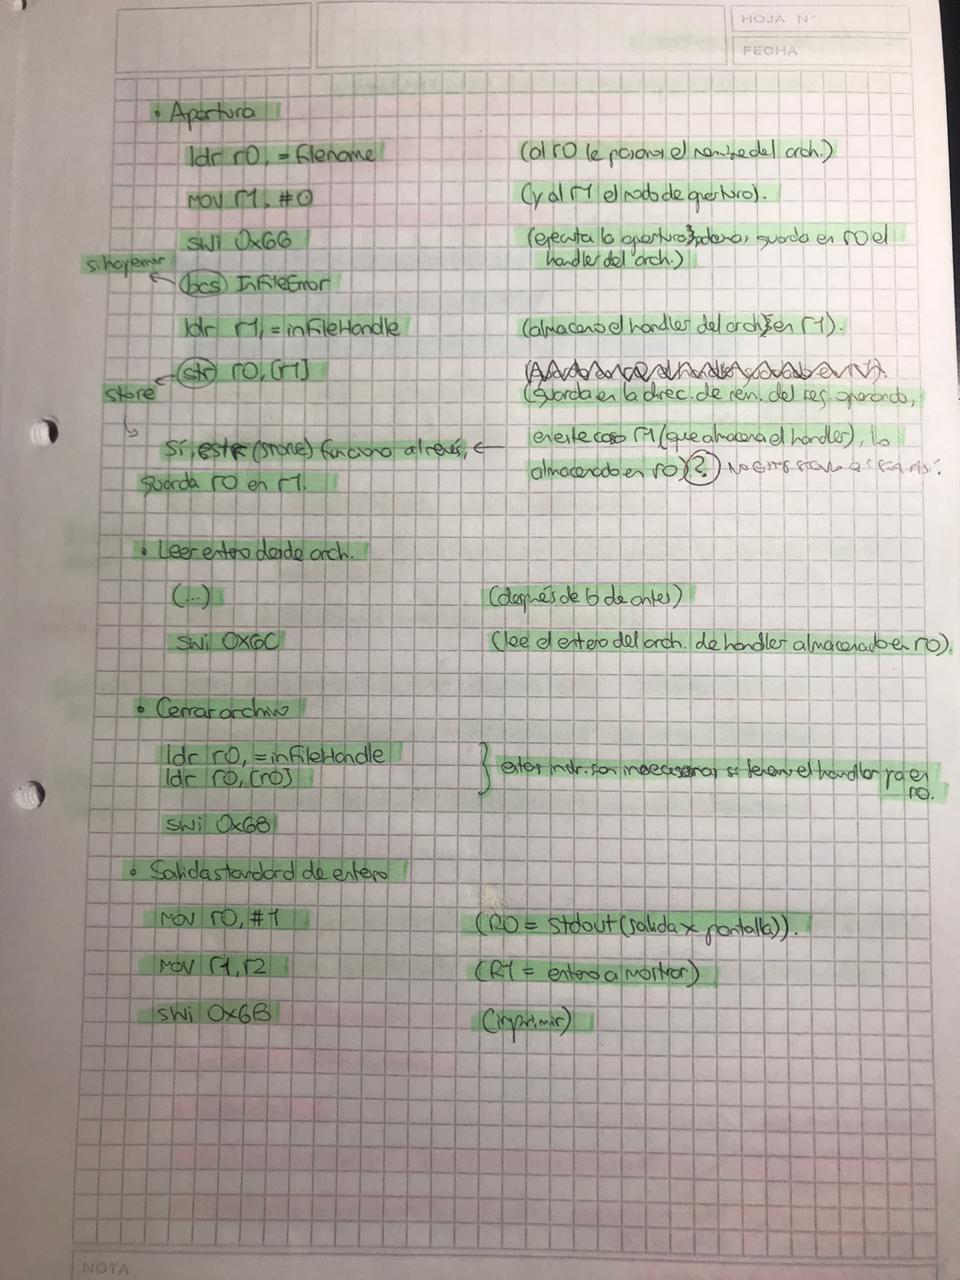 HOJA N°
FECHA
• Apertura
ldr r0, =filename (al r0 le paso el nombre del arch.)
MOV r1, #0 (y al r1 el modo de apertura).
swi 0x66 (ejecuta la apertura, guarda en r0 el
handler del arch.)
si hay error
bcs InFileError
ldr r1, =inFileHandle (almaceno el handler del arch en r1).
str r0, [r1]
store (guarda en la direc. de mem. del reg. operando,
Sí, este (store) funciona al revés, en este caso r1 (que almacena el handler), lo
guarda r0 en r1. almacenado en r0)?
• Leer entero desde arch.
(...) (después de lo de antes)
swi 0x6C (lee el entero del arch. de handler almacenado en r0).
• Cerrar archivo
ldr r0, =inFileHandle
ldr r0, [r0] estas instr. son innecesarias si tenemos el handler ya en
r0.
swi 0x68
• Salida standard de entero
MOV r0, #1 (R0 = Stdout (salida x pantalla)).
MOV r1, r2 (R1 = entero a mostrar)
swi 0x6B (imprimir)
NOTA